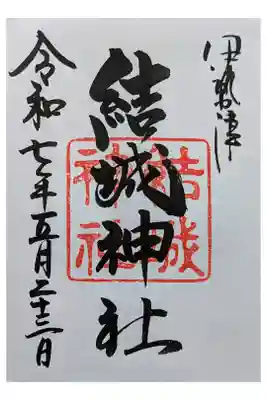 伊勢津
結城神社
結城
神社
令和七年五月二十三日